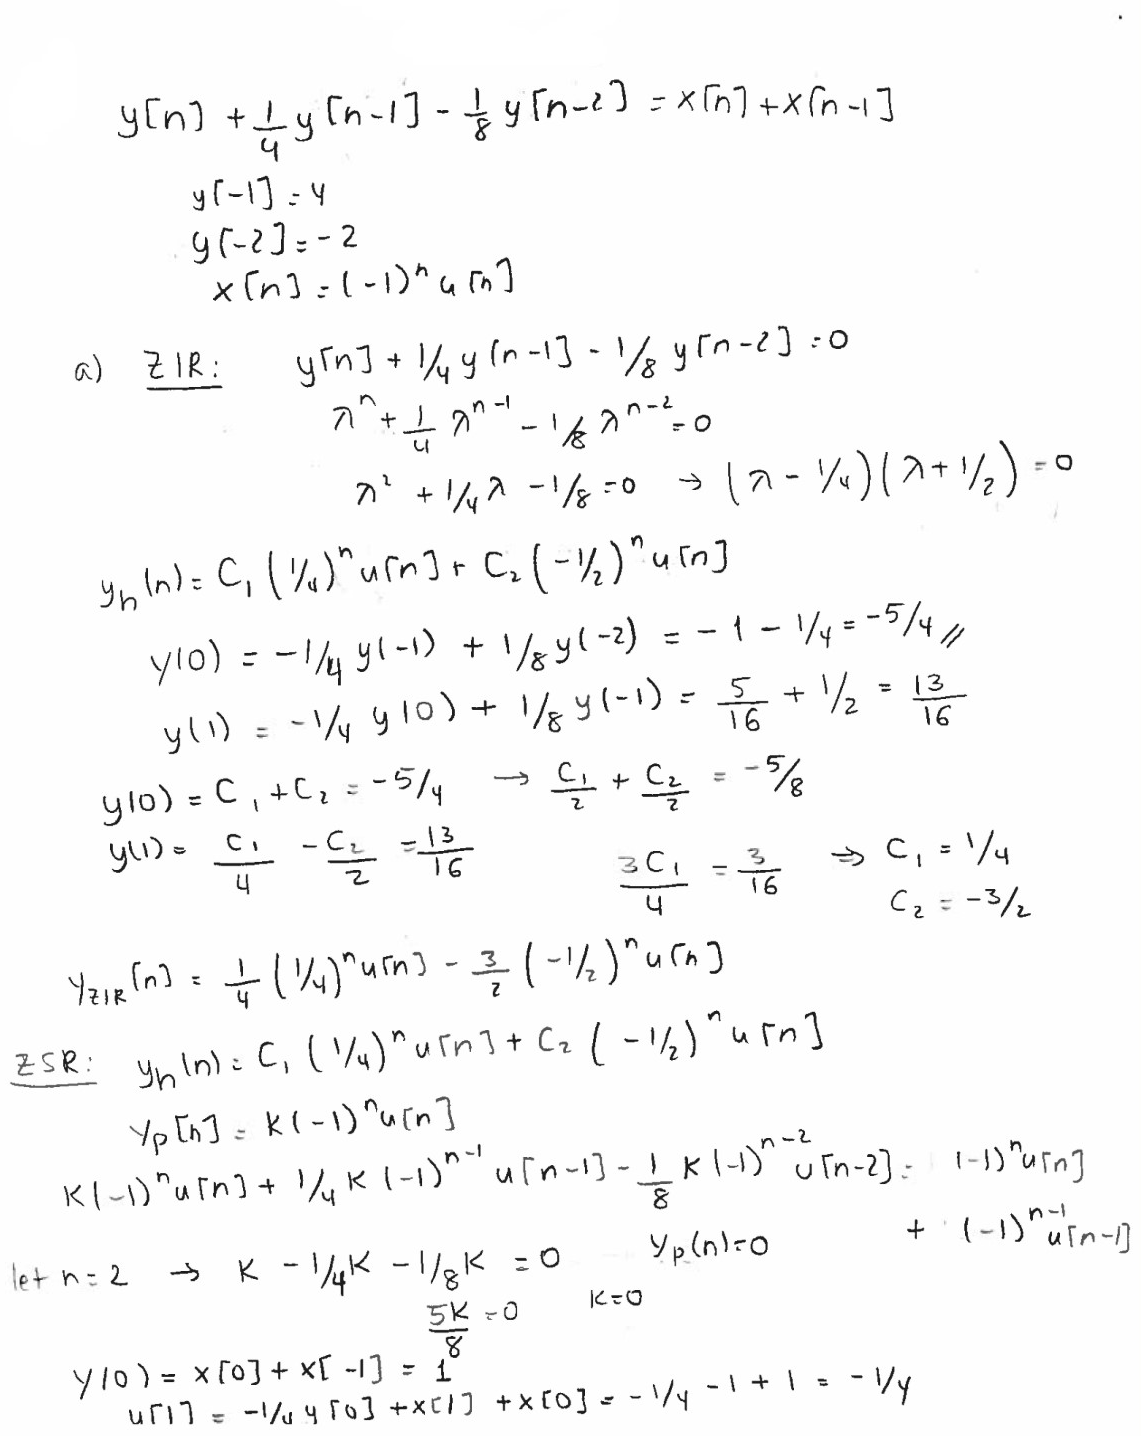 y[n] + 1/4 y[n-1] - 1/8 y[n-2] = x[n] + x[n-1]
y[-1] = 4
y[-2] = -2
x[n] = (-1)^n u[n]
a) ZIR: y[n] + 1/4 y[n-1] - 1/8 y[n-2] = 0
λ^n + 1/4 λ^{n-1} - 1/8 λ^{n-2} = 0
λ² + 1/4 λ - 1/8 = 0 → (λ - 1/4)(λ + 1/2) = 0
y_h(n) = C₁ (1/4)^n u[n] + C₂ (-1/2)^n u[n]
y(0) = -1/4 y(-1) + 1/8 y(-2) = -1 - 1/4 = -5/4 //
y(1) = -1/4 y(0) + 1/8 y(-1) = 5/16 + 1/2 = 13/16
y(0) = C₁ + C₂ = -5/4 → C₁/2 + C₂/2 = -5/8
y(1) = C₁/4 - C₂/2 = 13/16 3C₁/4 = 3/16 ⇒ C₁ = 1/4
C₂ = -3/2
y_ZIR[n] = 1/4 (1/4)^n u[n] - 3/2 (-1/2)^n u[n]
ZSR: y_h(n) = C₁ (1/4)^n u[n] + C₂ (-1/2)^n u[n]
y_p[n] = K(-1)^n u[n]
K(-1)^n u[n] + 1/4 K (-1)^{n-1} u[n-1] - 1/8 K (-1)^{n-2} u[n-2] = (-1)^n u[n]
+ (-1)^{n-1} u[n-1]
let n = 2 → K - 1/4K - 1/8K = 0 y_p(n) = 0
5K/8 = 0 K = 0
y(0) = x[0] + x[-1] = 1
y[1] = -1/4 y[0] + x[1] + x[0] = -1/4 - 1 + 1 = -1/4